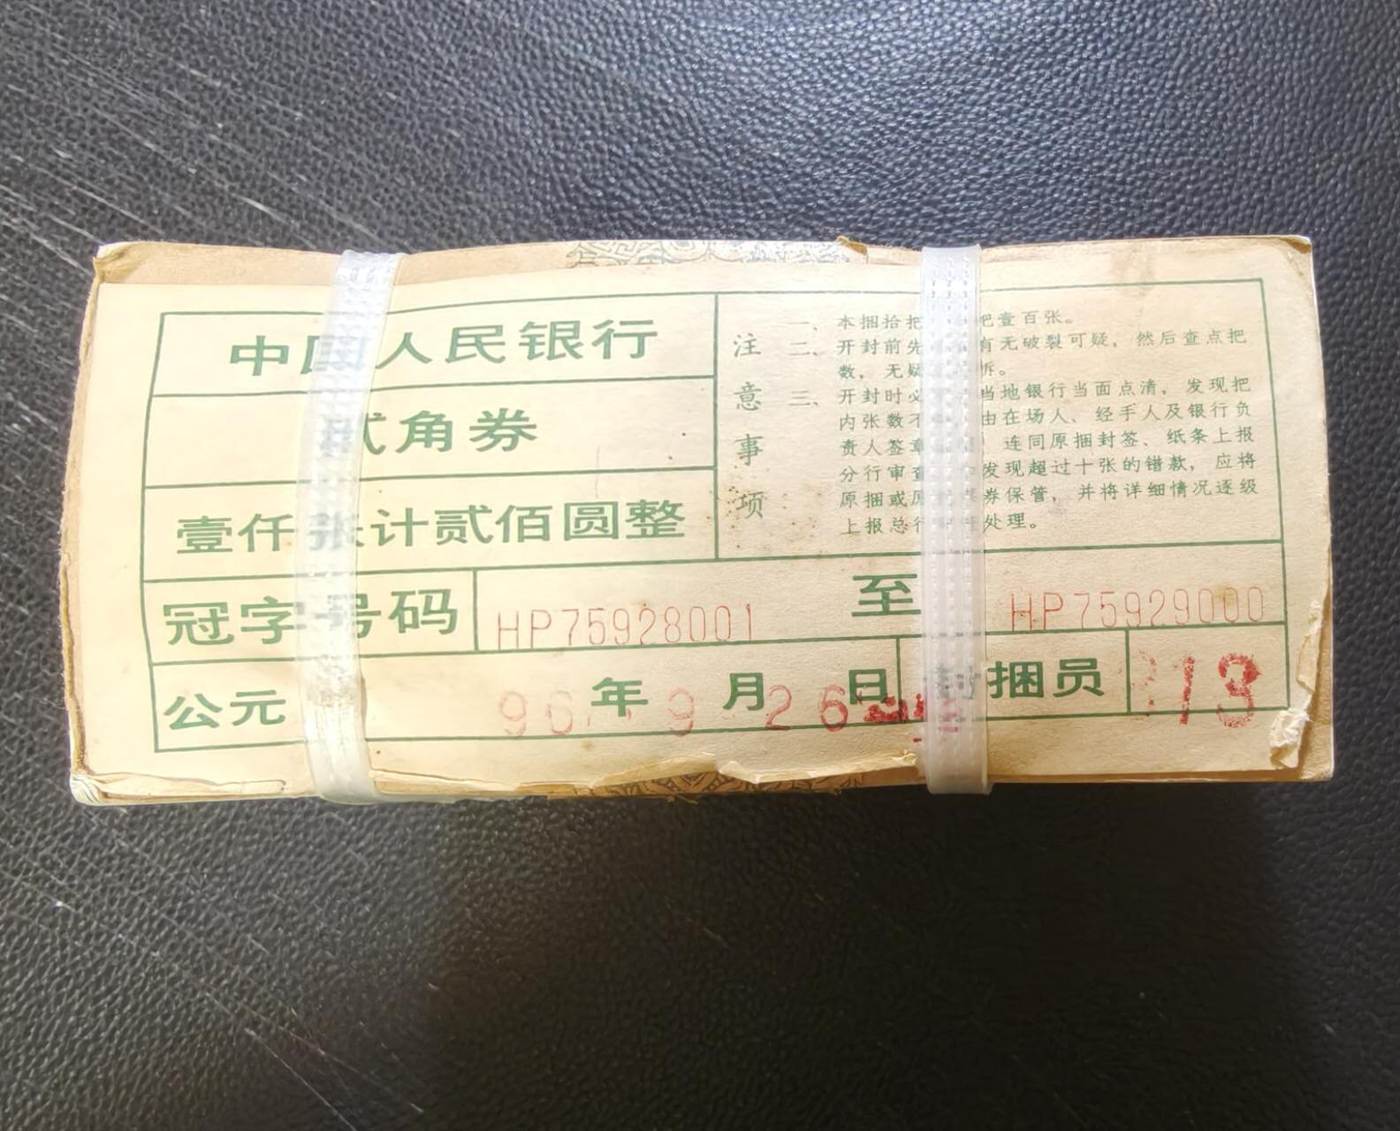 中国人民银行
贰角券
壹仟张计贰佰圆整
注意事项
一、本捆拾把 把壹百张。
二、开封前先 有无破裂可疑,然后查点把
数,无疑 拆。
三、开封时必 当地银行当面点清,发现把
内张数不 由在场人、经手人及银行负
责人签章 连同原捆封签、纸条上报
分行审查 发现超过十张的错款,应将
原捆或原 券保管,并将详细情况逐级
上报总行 处理。
冠字号码 HP75928001 至 HP75929000
公元 96年9月26日 封捆员 13